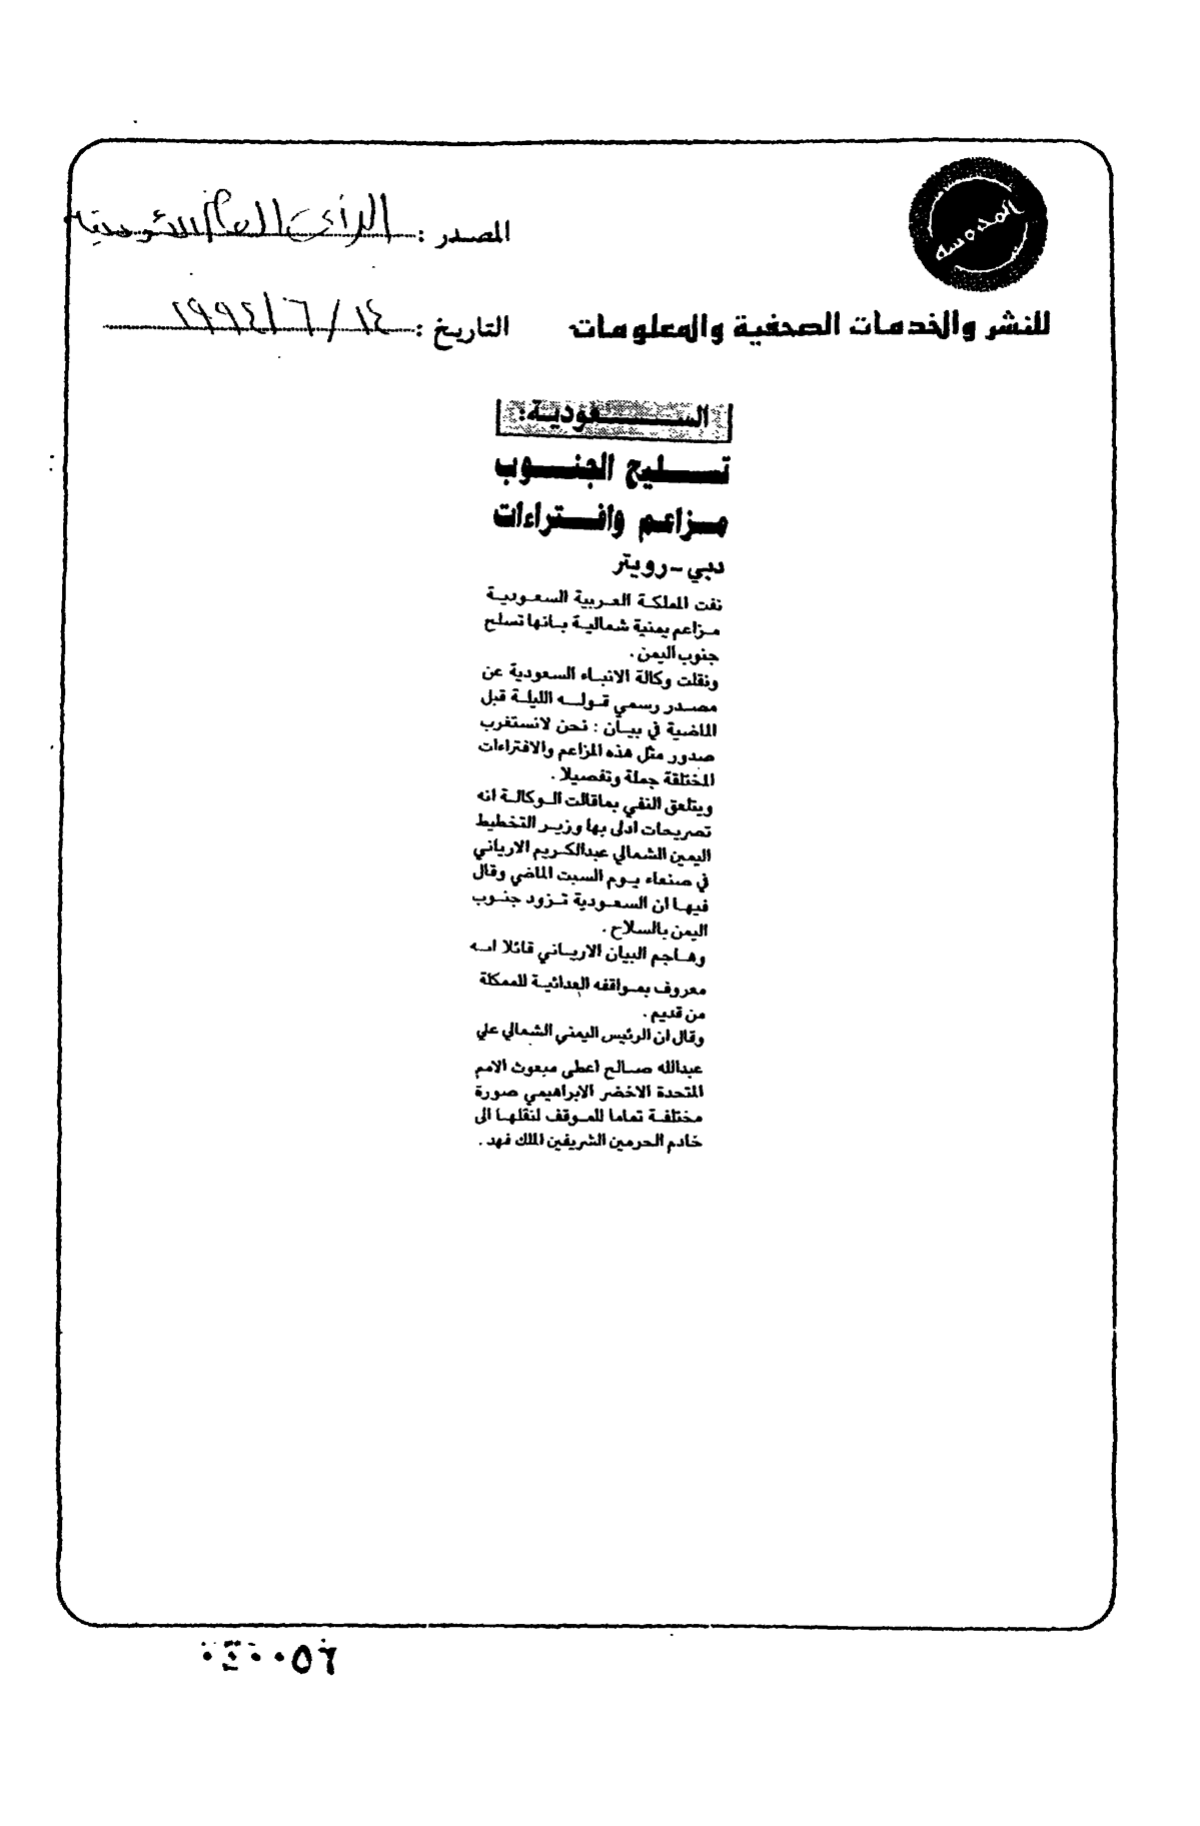 المدوسه
المصدر : الرأي العام السعودية
للنشر والخدمات الصحفية والمعلومات
التاريخ : ١٤ / ٦ / ١٩٩٤
السعودية:
تسليح الجنوب
مزاعم وافتراءات
دبي - رويتر
نفت المملكة العربية السعودية
مزاعم يمنية شمالية بانها تسلح
جنوب اليمن .
ونقلت وكالة الانباء السعودية عن
مصدر رسمي قوله الليلة قبل
الماضية في بيان : نحن لانستغرب
صدور مثل هذه المزاعم والافتراءات
المختلقة جملة وتفصيلا .
ويتلعق النفي بماقالت الوكالة انه
تصريحات ادلى بها وزير التخطيط
اليمين الشمالي عبدالكريم الارياني
في صنعاء يوم السبت الماضي وقال
فيها ان السعودية تزود جنوب
اليمن بالسلاح .
وهاجم البيان الارياني قائلا انه
معروف بمواقفه العدائية للممكلة
من قديم .
وقال ان الرئيس اليمني الشمالي علي
عبدالله صالح اعطى مبعوث الامم
المتحدة الاخضر الابراهيمي صورة
مختلفة تماما للموقف لنقلها الى
خادم الحرمين الشريفين الملك فهد .